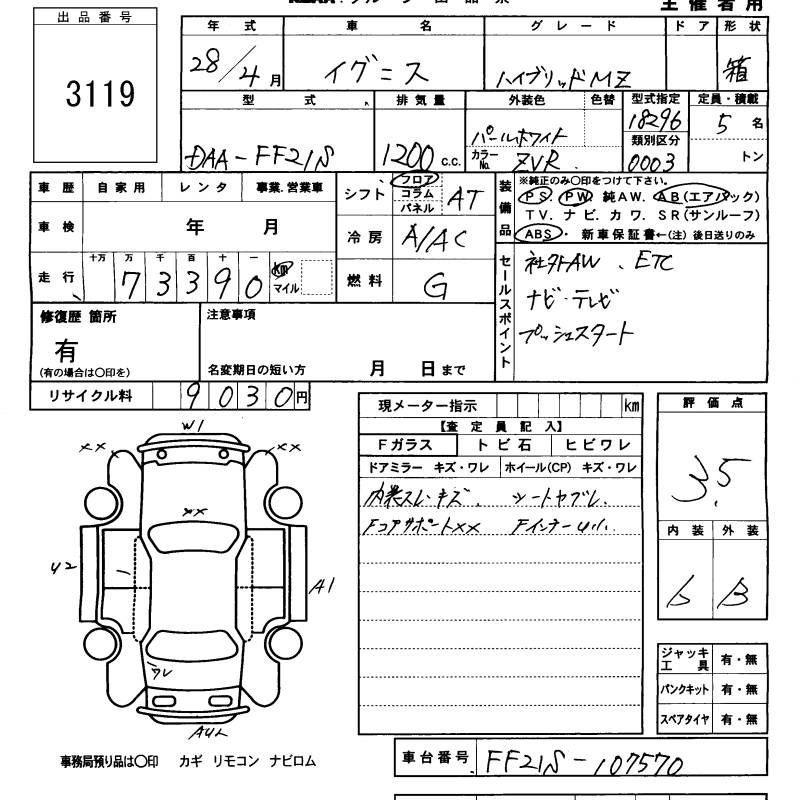 主催者用
出品番号
3119
年式 車名 グレード ドア 形状
28/4月 イグニス ハイブリッドMZ 箱
型式 排気量 外装色 色替 型式指定 定員・積載
DAA-FF21S 1200c.c. パールホワイト 18296 5名
カラーNo. ZVR 類別区分 0003 トン
車歴 自家用 レンタ 事業.営業車
シフト フロア コラム パネル AT
装備品 ※純正のみ〇印をつけて下さい。
PS. PW. 純AW. AB(エアバック)
TV. ナビ. カワ. SR(サンルーフ)
ABS・ 新車保証書←(注)後日送りのみ
車検 年 月
冷房 A/AC
走行 十万 万 千 百 十 一
73390 km マイル
燃料 G
セールスポイント 社外AW、ETC
ナビ・テレビ
プッシュスタート
修復歴 箇所
有
(有の場合は〇印を)
注意事項
名変期日の短い方 月 日まで
リサイクル料 9030円
現メーター指示 km
【査定員記入】
Fガラス トビ石 ヒビワレ
ドアミラー キズ・ワレ ホイール(CP) キズ・ワレ
内装スレ・キズ. シートヤブレ.
Fコアサポートxx Fインナーu小.
評価点
3.5
内装 外装
b B
W1
xx xx
xx
U2
A1
ワレ
ジャッキ工具 有・無
パンクキット 有・無
スペアタイヤ 有・無
事務局預り品は〇印 カギ リモコン ナビロム
車台番号 FF21S-107570